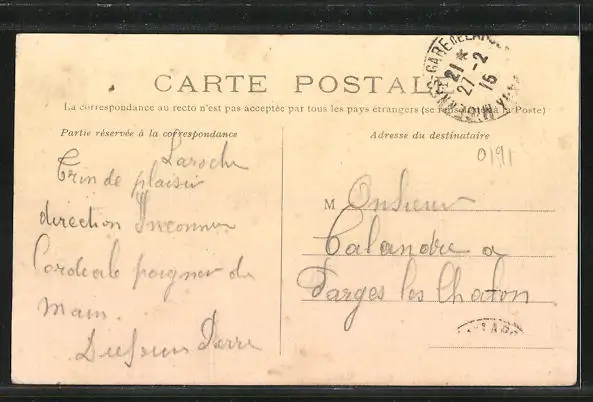 CARTE POSTALE
La correspondance au recto n'est pas acceptée par tous les pays étrangers (se renseigner à la Poste)
Partie réservée à la correspondance
Adresse du destinataire
GARE DE LAROCHE
21 *
27 - 2
15
0191
Laroche
Trin de plaisir
direction Inconnue
Cordeale poigner de
main.
Pierre
Monsieur
Calandre a
Farges les Chalon